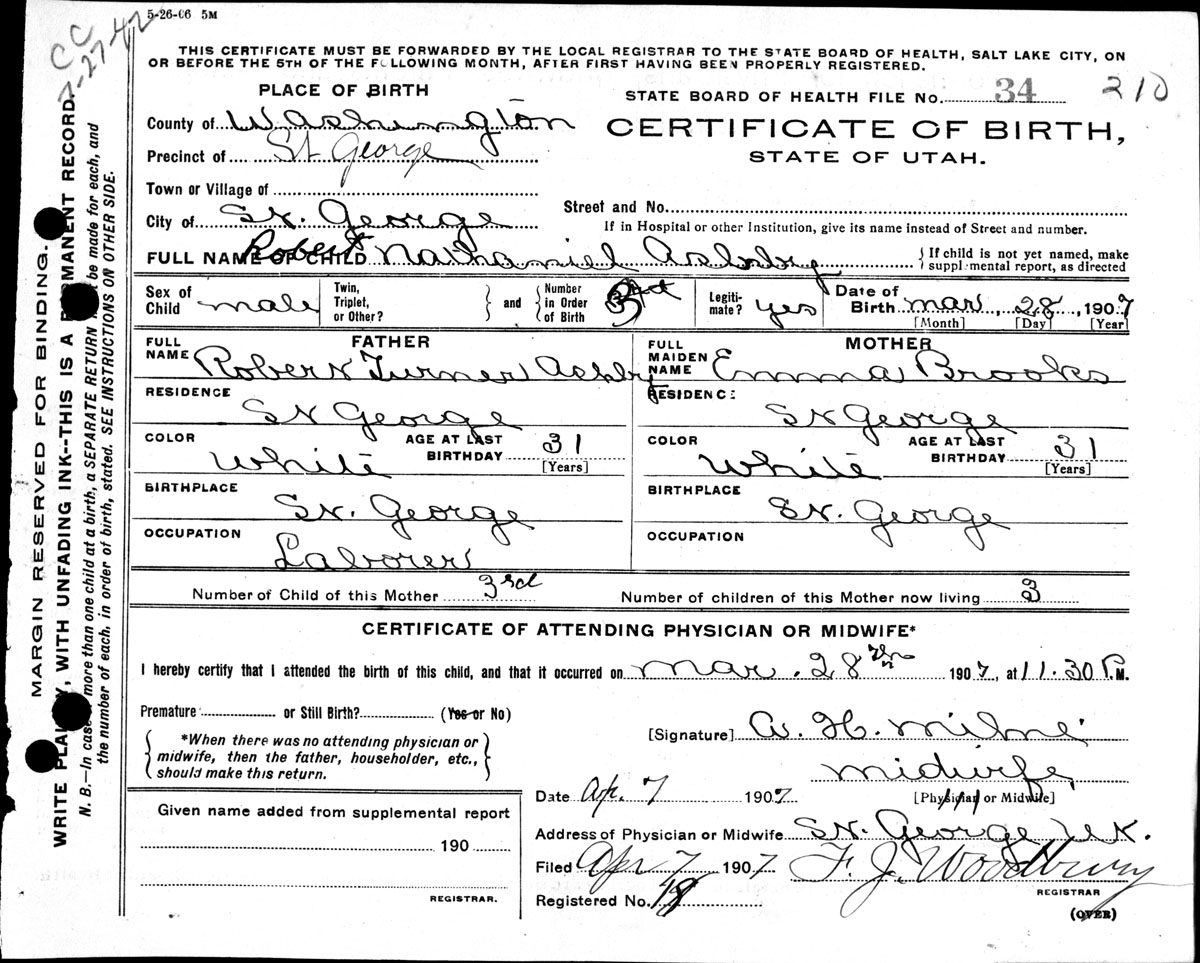 5-26-06 5M
CC
-27-42
THIS CERTIFICATE MUST BE FORWARDED BY THE LOCAL REGISTRAR TO THE STATE BOARD OF HEALTH, SALT LAKE CITY, ON
OR BEFORE THE 5TH OF THE FOLLOWING MONTH, AFTER FIRST HAVING BEEN PROPERLY REGISTERED.
PLACE OF BIRTH
STATE BOARD OF HEALTH FILE No. 34 210
County of Washington
CERTIFICATE OF BIRTH,
Precinct of St George
STATE OF UTAH.
Town or Village of
City of St. George
Street and No.
If in Hospital or other Institution, give its name instead of Street and number.
FULL NAME OF CHILD Robert Nathaniel Ashby { If child is not yet named, make
supplemental report, as directed
Sex of Child male Twin, Triplet, or Other? } and { Number in Order of Birth 3rd Legiti-mate? yes Date of Birth Mar, 28, 1907
[Month] [Day] [Year]
FATHER MOTHER
FULL NAME Robert Turner Ashby FULL MAIDEN NAME Emma Brooks
RESIDENCE St George RESIDENCE St George
COLOR White AGE AT LAST BIRTHDAY 31 [Years] COLOR White AGE AT LAST BIRTHDAY 31 [Years]
BIRTHPLACE St. George BIRTHPLACE St. George
OCCUPATION Laborer OCCUPATION
Number of Child of this Mother 3rd Number of children of this Mother now living 3
CERTIFICATE OF ATTENDING PHYSICIAN OR MIDWIFE*
I hereby certify that I attended the birth of this child, and that it occurred on Mar. 28th 1907, at 11.30 P.M.
Premature or Still Birth? (Yes or No)
[Signature] A. H. Milne
*When there was no attending physician or
midwife, then the father, householder, etc.,
should make this return.
Midwife
[Physician or Midwife]
Date Ap. 7 1907
Given name added from supplemental report
190
REGISTRAR.
Address of Physician or Midwife St. George Ut.
Filed Apr 7 1907 F. J. Woodbury
REGISTRAR
Registered No. 18
(OVER)
MARGIN RESERVED FOR BINDING.
WRITE PLAINLY, WITH UNFADING INK--THIS IS A PERMANENT RECORD.
N. B.—In case of more than one child at a birth, a SEPARATE RETURN must be made for each, and
the number of each, in order of birth, stated. SEE INSTRUCTIONS ON OTHER SIDE.